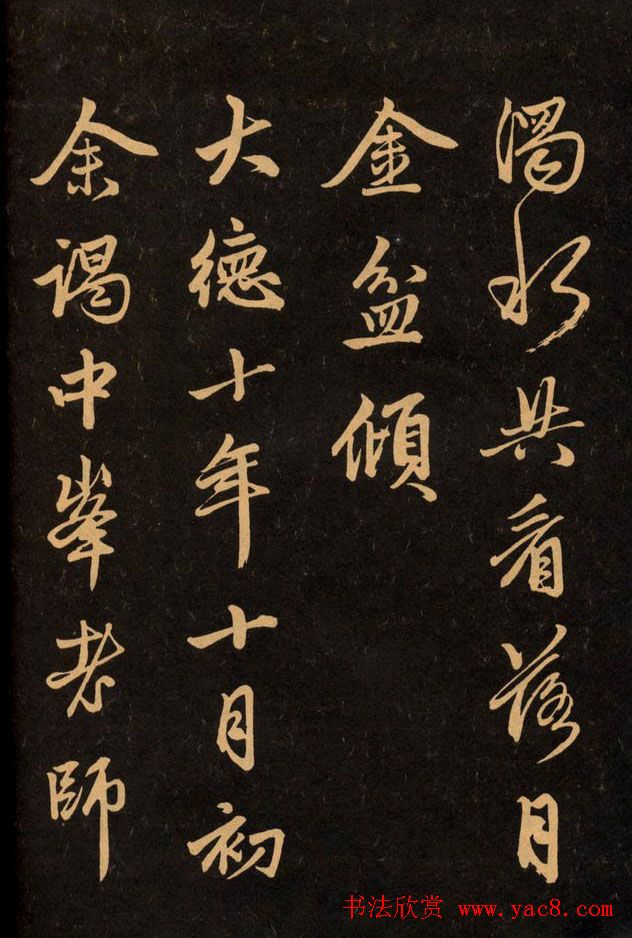 濁水共看落月
金盆傾
大德十年十月初
余謁中峯老師
书法欣赏 www.yac8.com